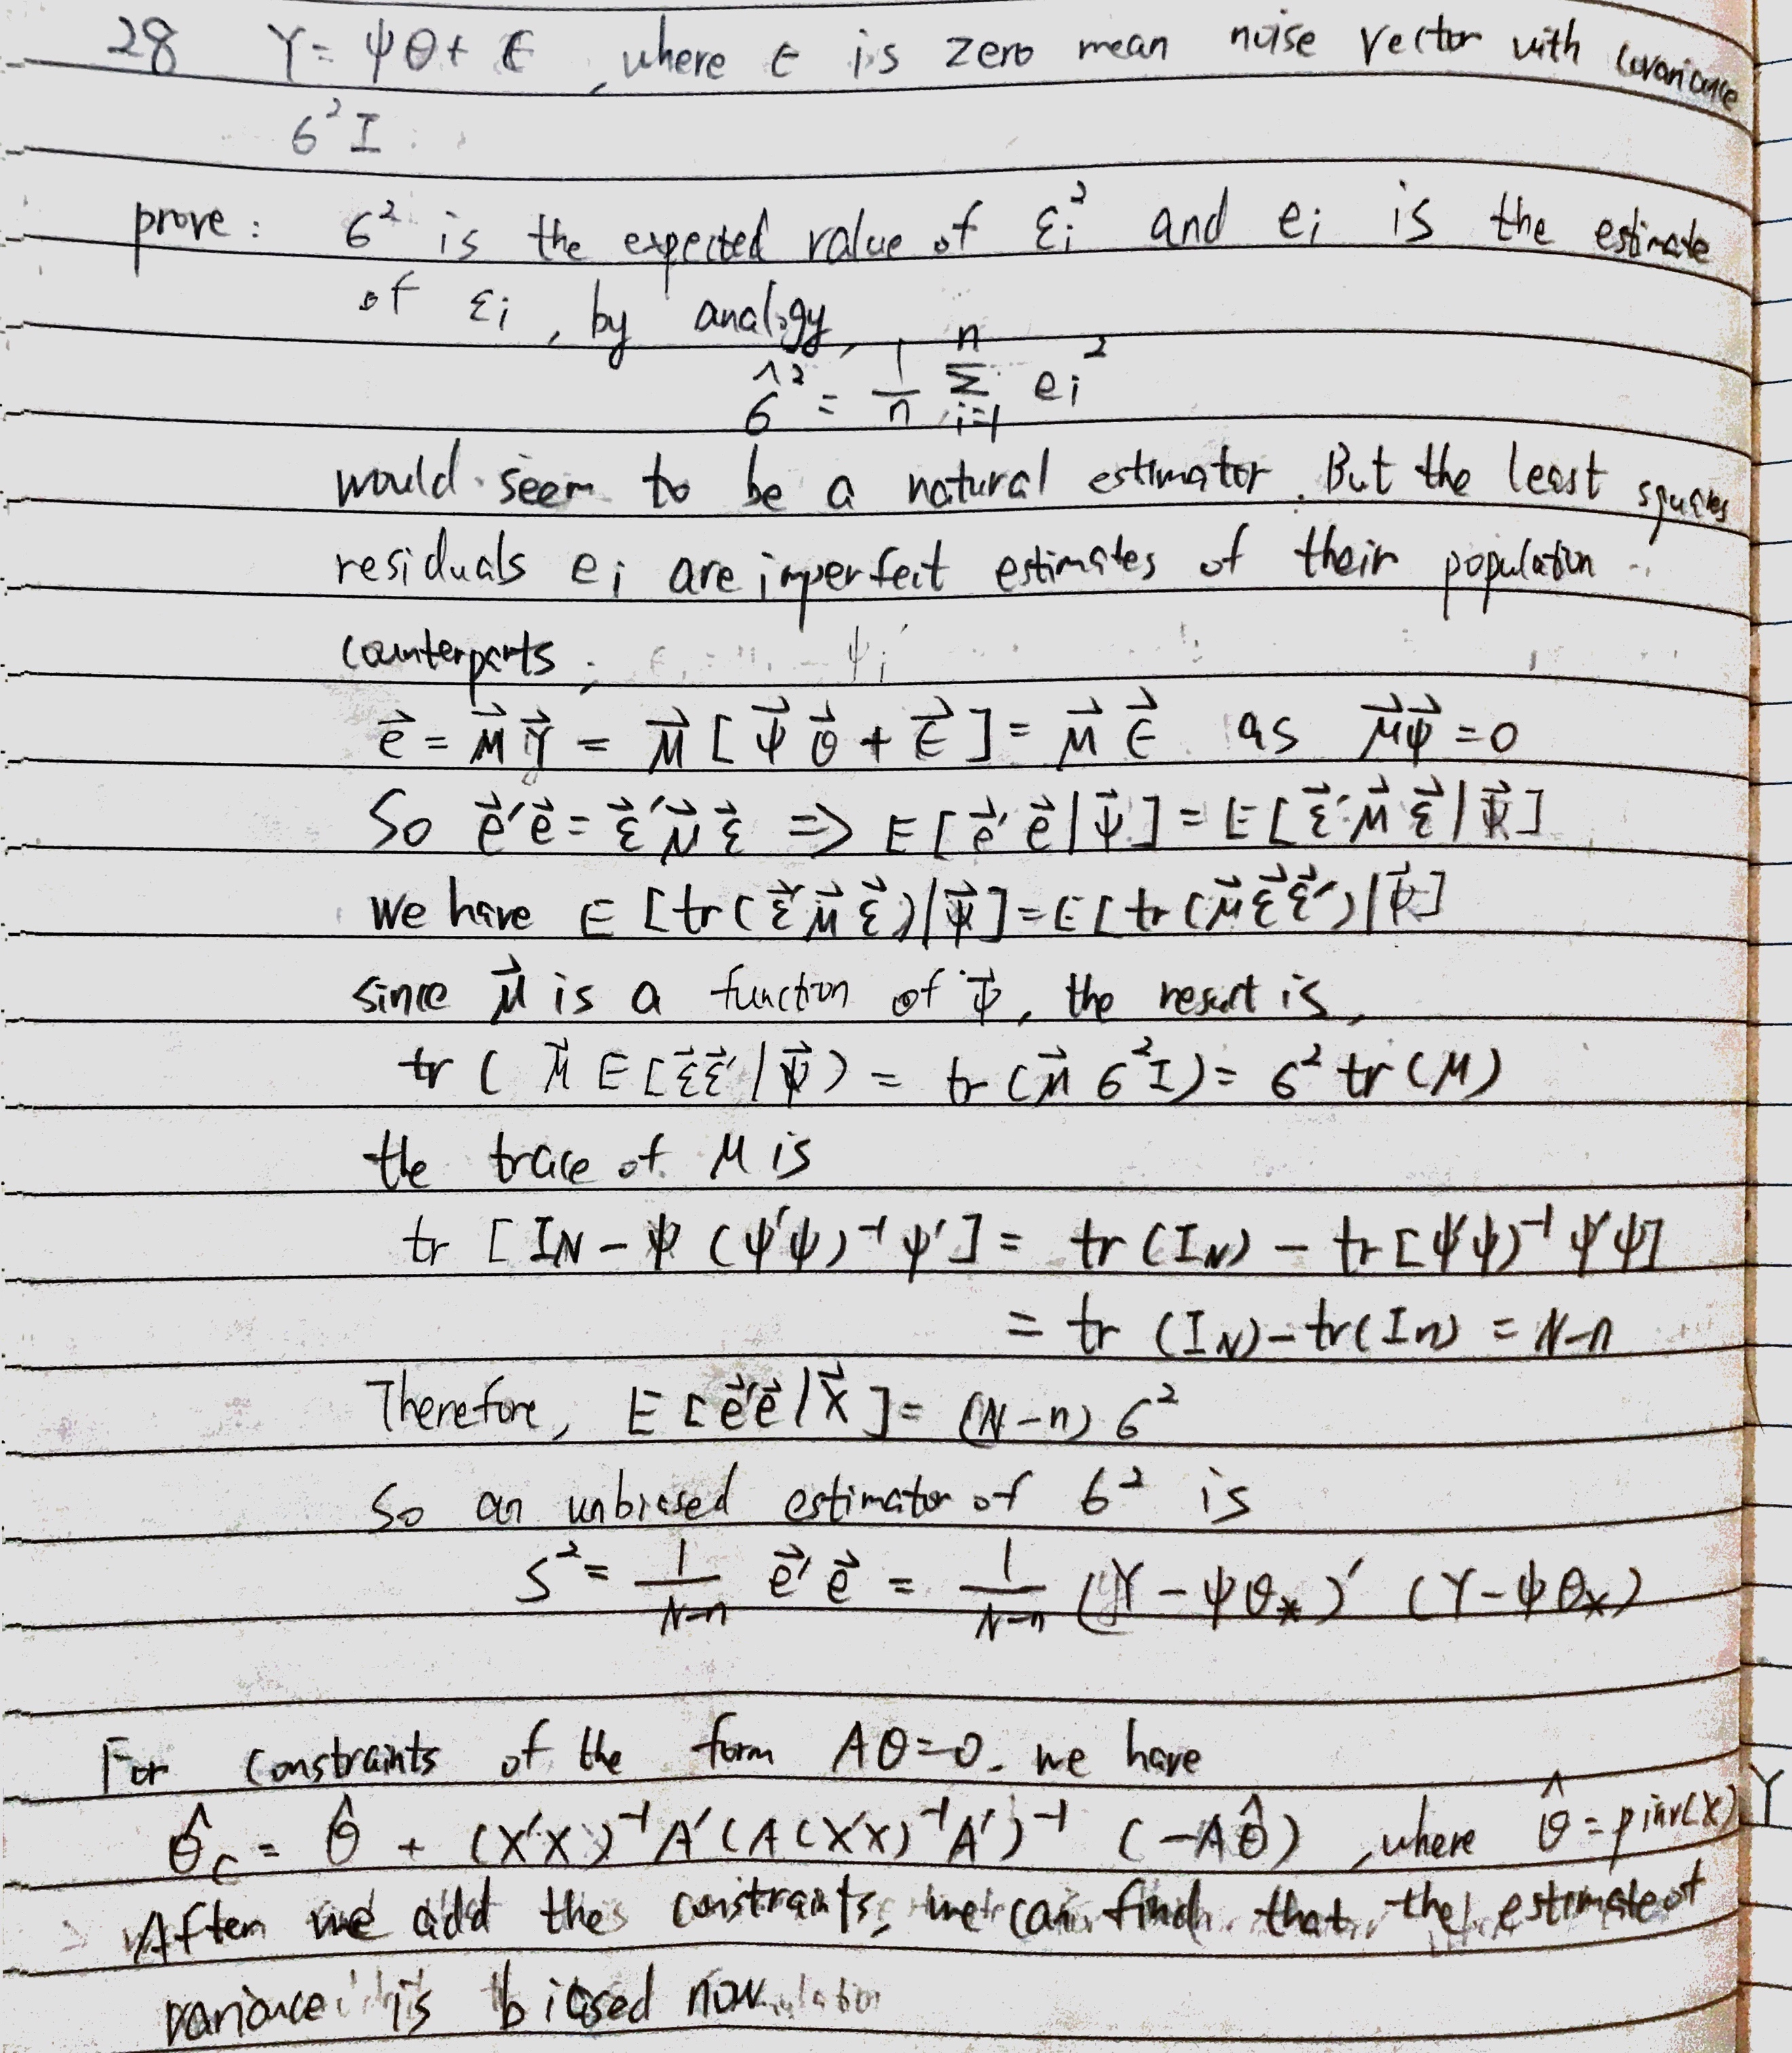 28 Y = ψθ + ϵ , where ϵ is zero mean noise vector with covariance
6² I .
prove : 6² is the expected value of εi² and ei is the estimate
of εi , by analogy,
6̂² = 1/n Σ_{i=1}^{n} ei²
would seem to be a natural estimator. But the least squares
residuals ei are imperfect estimates of their population
counterparts,
e⃗ = M⃗ Y⃗ = M⃗ [ ψ⃗ θ⃗ + ϵ⃗ ] = M⃗ ϵ⃗ as M⃗ψ⃗ = 0
So e⃗'e⃗ = ε⃗'M⃗ε⃗ => E[e⃗'e⃗|ψ⃗] = E[ε⃗'M⃗ε⃗|ψ⃗]
We have E[tr(ε⃗'M⃗ε⃗)|ψ⃗] = E[tr(M⃗ε⃗ε⃗')|ψ⃗]
since M⃗ is a function of ψ⃗, the result is,
tr ( M⃗ E[ε⃗ε⃗'|ψ⃗) = tr (M⃗ 6²I) = 6² tr (M)
the trace of M is
tr [ IN - ψ (ψ'ψ)⁻¹ ψ' ] = tr (IN) - tr [ψ'ψ)⁻¹ ψ'ψ]
= tr (IN) - tr(In) = N-n
Therefore, E [e⃗'e⃗|X⃗] = (N-n) 6²
So an unbiased estimator of 6² is
S² = 1/(N-n) e⃗'e⃗ = 1/(N-n) (Y - ψθ*)' (Y - ψθ*)
For constraints of the form Aθ=0. we have
θ̂c = θ̂ + (X'X)⁻¹ A' (A (X'X)⁻¹ A')⁻¹ (-Aθ̂) , where θ̂ = pinv(X) Y
After we add the constraints, we can find that the estimate of
variance is biased now